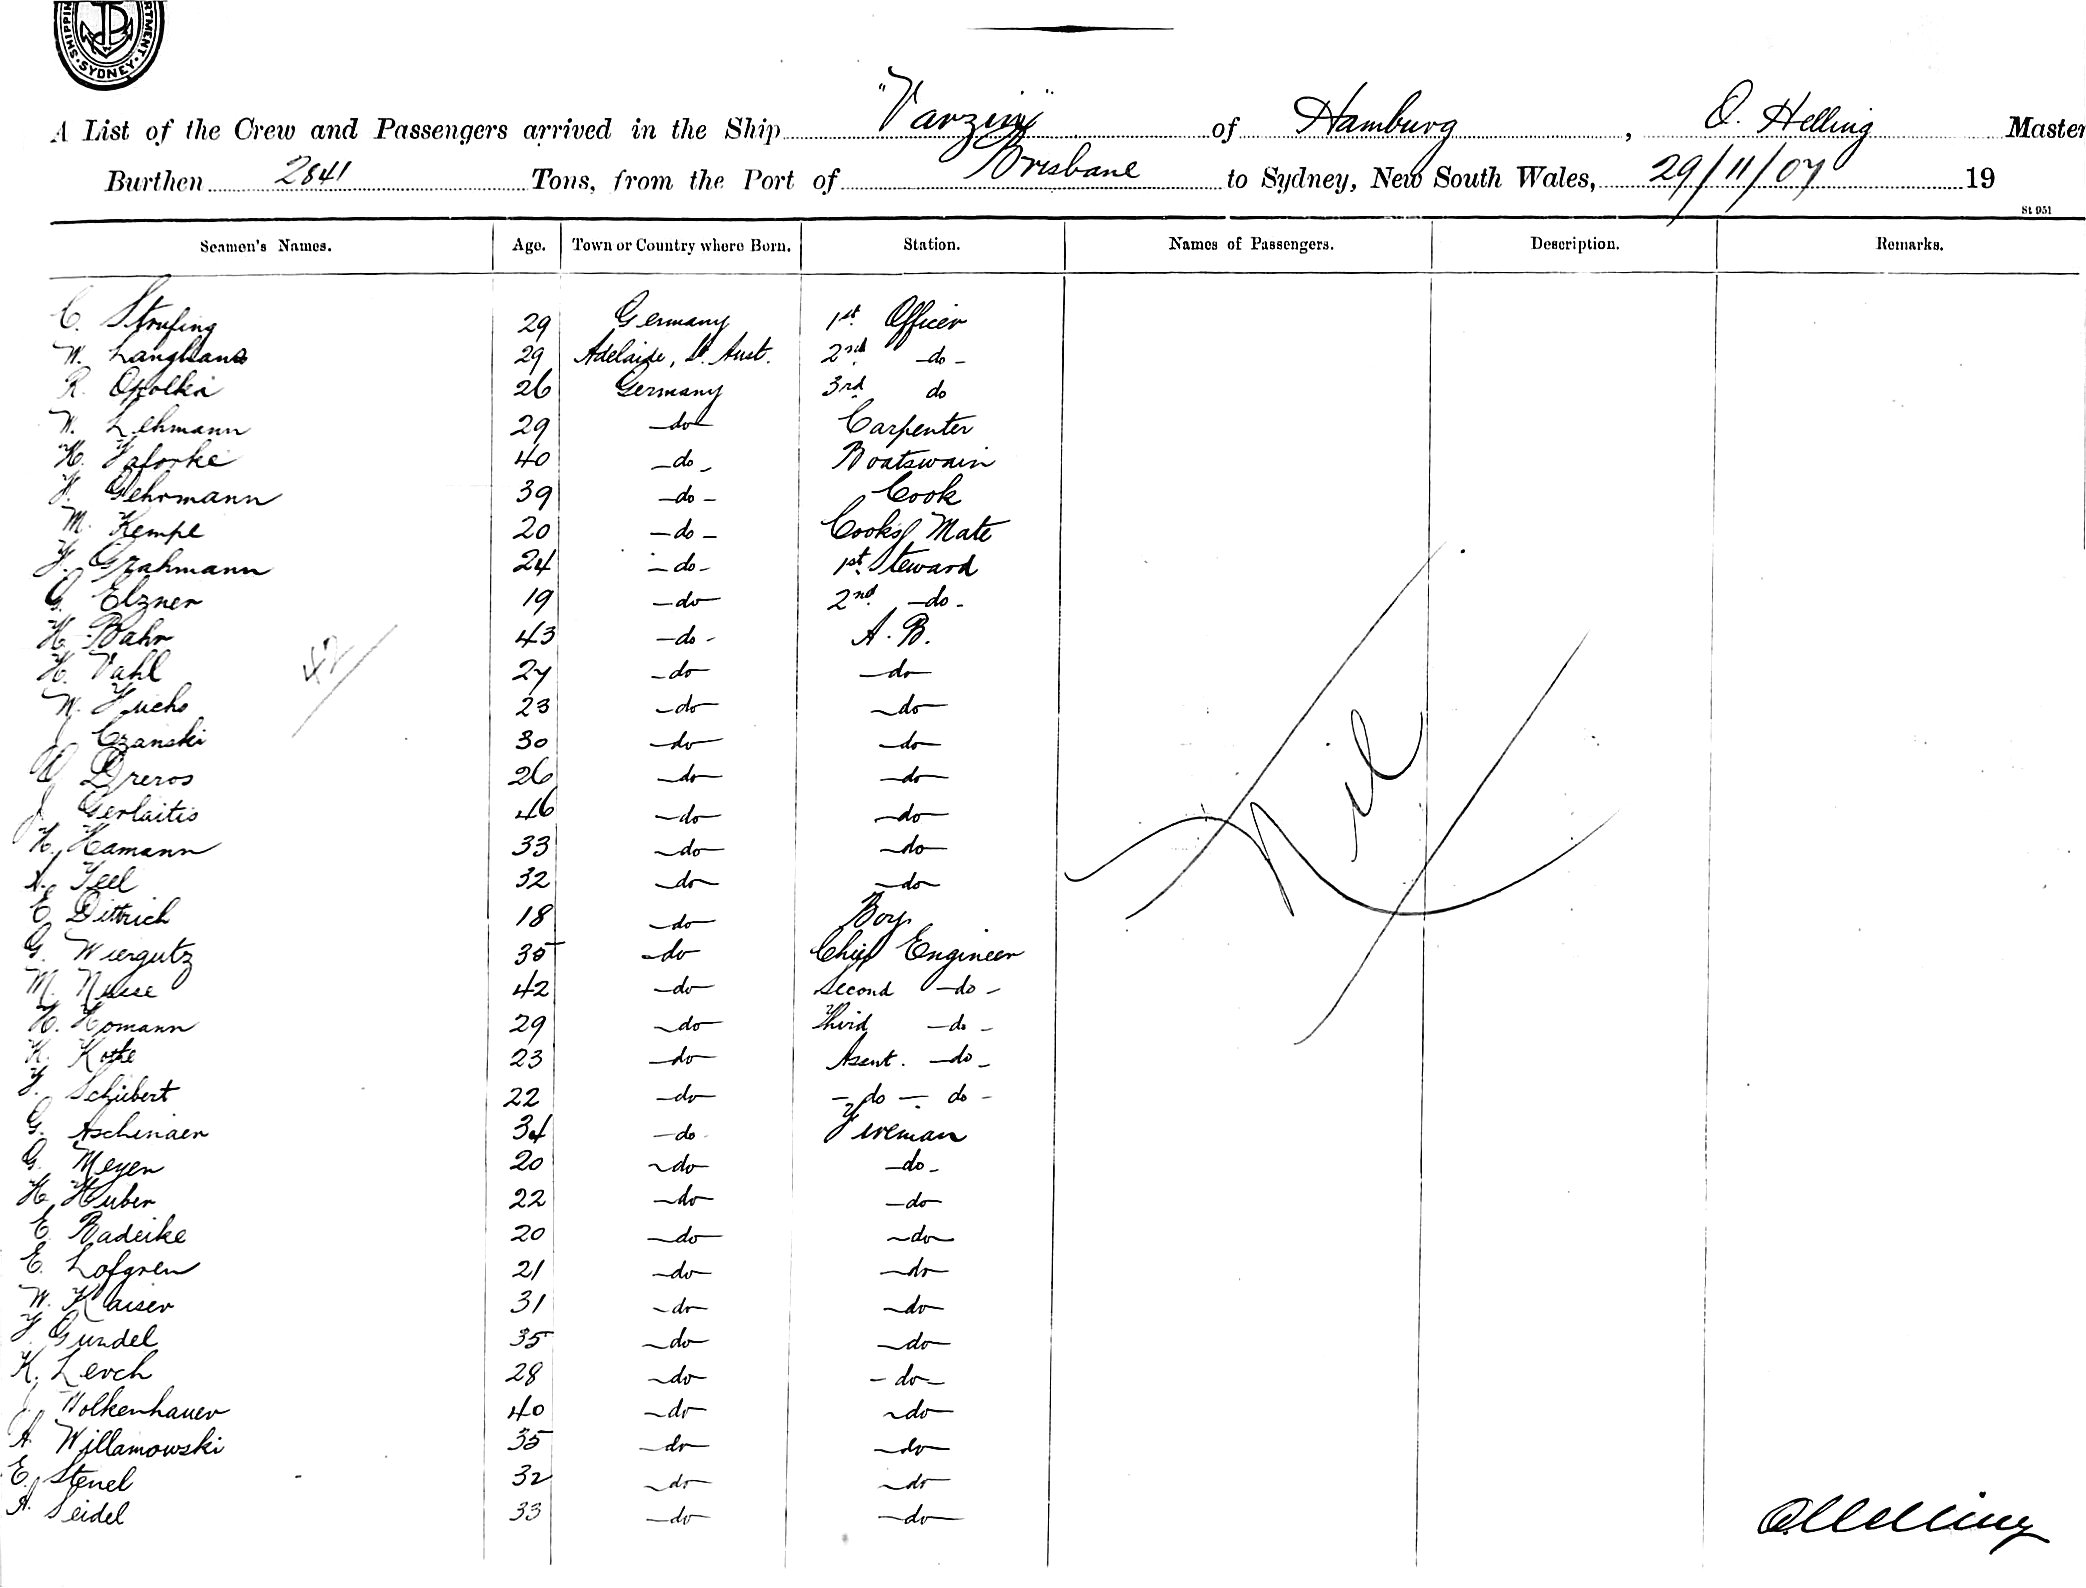 SHIPPING DEPARTMENT SYDNEY
A List of the Crew and Passengers arrived in the Ship "Varzin" of Hamburg, O. Helling Master
Burthen 2841 Tons, from the Port of Brisbane to Sydney, New South Wales, 29/11/07 19
St 951
Seamen's Names. Age. Town or Country where Born. Station. Names of Passengers. Description. Remarks.
C. Strufing 29 Germany 1st. Officer
W. Langhans 29 Adelaide, S. Aust. 2nd -do-
R. Opolka 26 Germany 3rd do
W. Lehmann 29 -do- Carpenter
H. 40 -do- Boatswain
F. Gehrmann 39 -do- Cook
M. Kempe 20 -do- Cooks Mate
F. Grahmann 24 -do- 1st. Steward
G. Elzner 19 -do- 2nd. -do-
H. Bahr 43 -do- A. B.
H. Vahl 27 -do- -do-
42/
W. Fuchs 23 -do- -do-
J. Czanski 30 -do- -do-
O. Dreros 26 -do- -do-
J. Gerlaitis 46 -do- -do-
H. Hamann 33 -do- -do-
Nil
A. Feel 32 -do- -do-
E. Dittrich 18 -do- Boy
G. Wiergutz 35 -do- Chief Engineer
M. 42 -do- Second -do-
H. Homann 29 -do- Third -do-
K. Kothe 23 -do- Assnt. -do-
F. Schubert 22 -do- -do- do-
G. Aschenaer 34 -do- Fireman
G. Meyer 20 -do- -do-
H. Huber 22 -do- -do-
E. Badeike 20 -do- -do-
E. Lofgren 21 -do- -do-
W. Kaiser 31 -do- -do-
F. Gundel 35 -do- -do-
K. Lerch 28 -do- -do-
J. Wolkenhauer 40 -do- -do-
A. Willamowski 35 -do- -do-
E. Stenel 32 -do- -do-
A. Seidel 33 -do- -do-
O. Helling